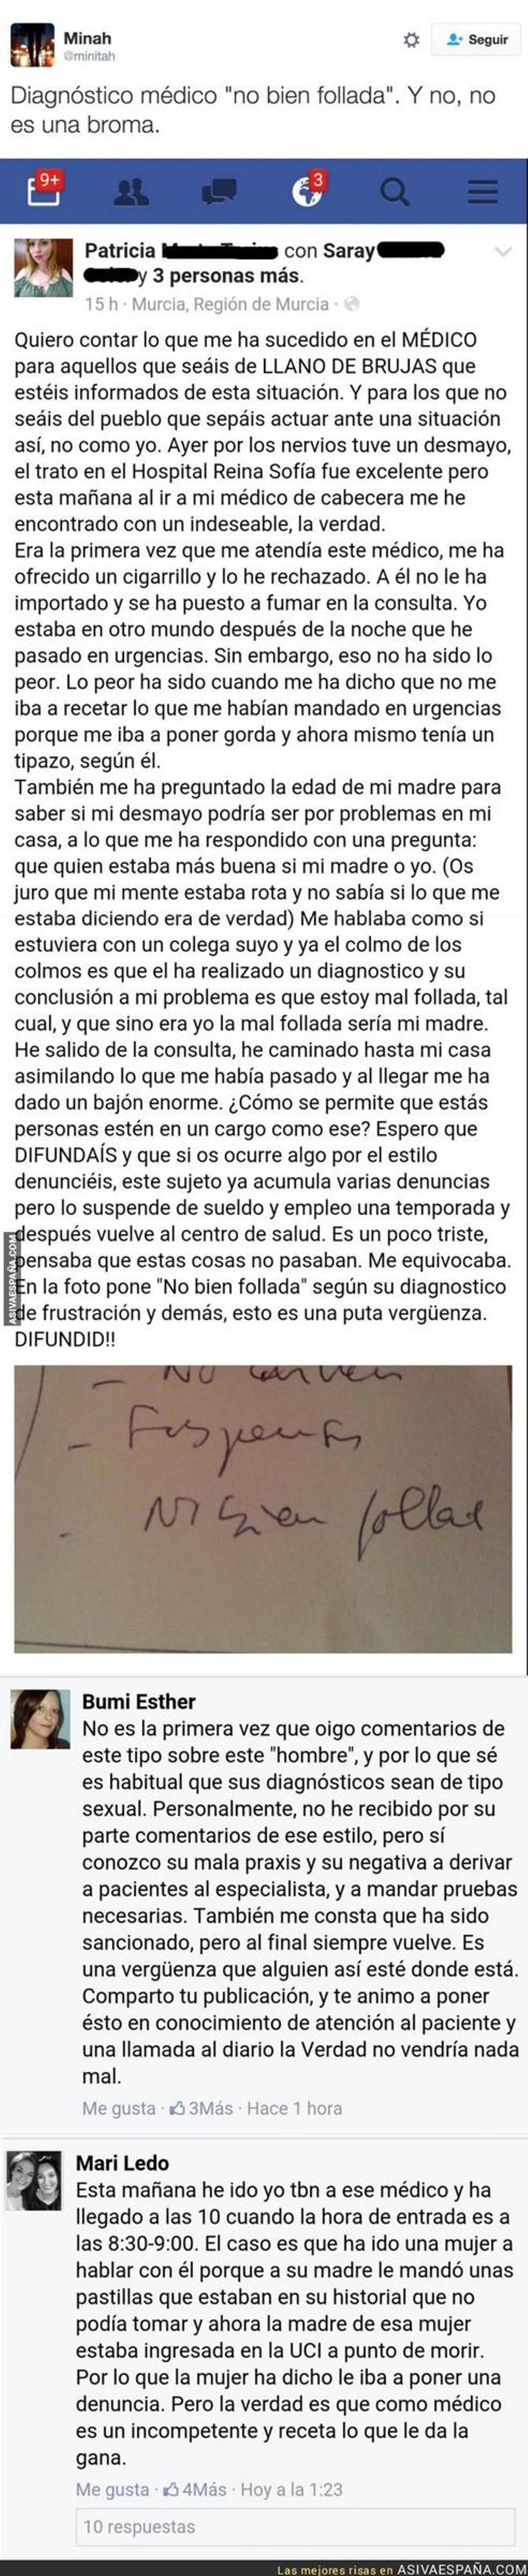 Minah
@minitah
Seguir
Diagnóstico médico "no bien follada". Y no, no
es una broma.
9+
3
Patricia con Saray
y 3 personas más.
15 h · Murcia, Región de Murcia ·
Quiero contar lo que me ha sucedido en el MÉDICO
para aquellos que seáis de LLANO DE BRUJAS que
estéis informados de esta situación. Y para los que no
seáis del pueblo que sepáis actuar ante una situación
así, no como yo. Ayer por los nervios tuve un desmayo,
el trato en el Hospital Reina Sofía fue excelente pero
esta mañana al ir a mi médico de cabecera me he
encontrado con un indeseable, la verdad.
Era la primera vez que me atendía este médico, me ha
ofrecido un cigarrillo y lo he rechazado. A él no le ha
importado y se ha puesto a fumar en la consulta. Yo
estaba en otro mundo después de la noche que he
pasado en urgencias. Sin embargo, eso no ha sido lo
peor. Lo peor ha sido cuando me ha dicho que no me
iba a recetar lo que me habían mandado en urgencias
porque me iba a poner gorda y ahora mismo tenía un
tipazo, según él.
También me ha preguntado la edad de mi madre para
saber si mi desmayo podría ser por problemas en mi
casa, a lo que me ha respondido con una pregunta:
que quien estaba más buena si mi madre o yo. (Os
juro que mi mente estaba rota y no sabía si lo que me
estaba diciendo era de verdad) Me hablaba como si
estuviera con un colega suyo y ya el colmo de los
colmos es que el ha realizado un diagnostico y su
conclusión a mi problema es que estoy mal follada, tal
cual, y que sino era yo la mal follada sería mi madre.
He salido de la consulta, he caminado hasta mi casa
asimilando lo que me había pasado y al llegar me ha
dado un bajón enorme. ¿Cómo se permite que estás
personas estén en un cargo como ese? Espero que
DIFUNDAÍS y que si os ocurre algo por el estilo
denunciéis, este sujeto ya acumula varias denuncias
pero lo suspende de sueldo y empleo una temporada y
después vuelve al centro de salud. Es un poco triste,
pensaba que estas cosas no pasaban. Me equivocaba.
En la foto pone "No bien follada" según su diagnostico
de frustración y demás, esto es una puta vergüenza.
DIFUNDID!!
ASIVAESPAÑA.COM
- No
-
- No bien follad
Bumi Esther
No es la primera vez que oigo comentarios de
este tipo sobre este "hombre", y por lo que sé
es habitual que sus diagnósticos sean de tipo
sexual. Personalmente, no he recibido por su
parte comentarios de ese estilo, pero sí
conozco su mala praxis y su negativa a derivar
a pacientes al especialista, y a mandar pruebas
necesarias. También me consta que ha sido
sancionado, pero al final siempre vuelve. Es
una vergüenza que alguien así esté donde está.
Comparto tu publicación, y te animo a poner
ésto en conocimiento de atención al paciente y
una llamada al diario la Verdad no vendría nada
mal.
Me gusta · 3Más · Hace 1 hora
Mari Ledo
Esta mañana he ido yo tbn a ese médico y ha
llegado a las 10 cuando la hora de entrada es a
las 8:30-9:00. El caso es que ha ido una mujer a
hablar con él porque a su madre le mandó unas
pastillas que estaban en su historial que no
podía tomar y ahora la madre de esa mujer
estaba ingresada en la UCI a punto de morir.
Por lo que la mujer ha dicho le iba a poner una
denuncia. Pero la verdad es que como médico
es un incompetente y receta lo que le da la
gana.
Me gusta · 4Más · Hoy a la 1:23
10 respuestas
Las mejores risas en ASIVAESPAÑA.COM